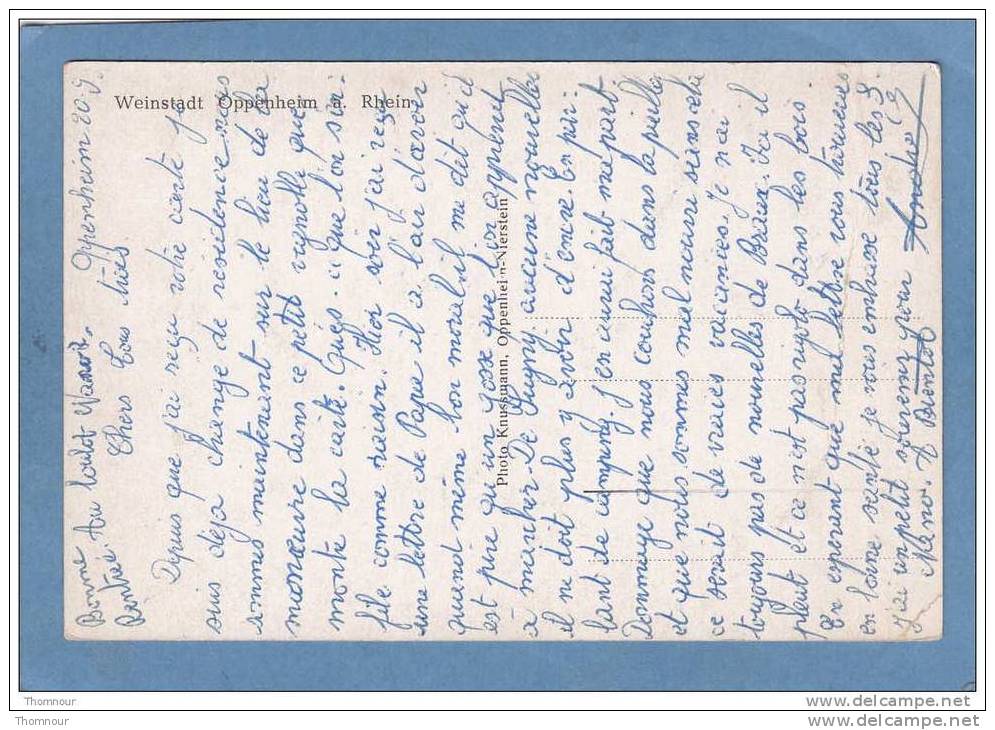 Weinstadt Oppenheim a. Rhein
Photo Knussmann, Oppenheim-Nierstein
Oppenheim 20.9.
Bonne Au loulot
Rentrée. Chers Tous trées.
Depuis que j'ai reçu votre carte je
suis deja changé de residence nous
sommes maintenant sur le lieu de la
manoeuvre dans ce petit vignoble que
montre la carte. Quies. "que l'on si
file comme raisin. Hier soir j'ai reçu
une lettre de Papa il a l'air d'avoir
quand même bon moral il me dit qu'il
est pire qu'un gosse que l'on apprend
à marcher. De Sugny aucune nouvelles
il ne doit plus y avoir d'encre. En pri-
lant de camping. j'en aurai fait ma part.
Dommage que nous couchons dans la paille
et que nous sommes mal nourri sans cela
ce serait de vraies vacances. Je n'ai
toujours pas de nouvelles de Brieux. Ici il
pleut et ce n'est pas rigolo dans les bois
En esperant que ma lettre vous trouveras
en bonne santé je vous embrasse tres les 3
J'ai un petit souvenir pour
Mano. A Bientot
Thomnour
Thomnour
www.delcampe.net
www.delcampe.net